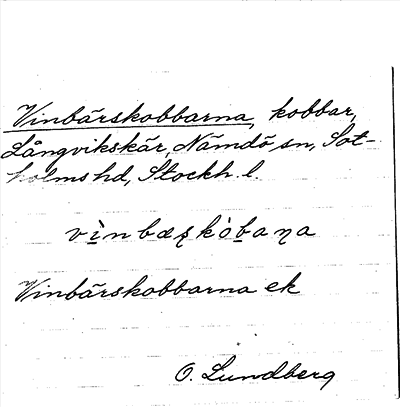 Vinbärskobbarna, kobbar,
Långvikskär, Nämdö sn, Sot-
holms hd, Stockh. l.
vìnbæʂkòbaṇa
Vinbärskobbarna ek
O. Lundberg